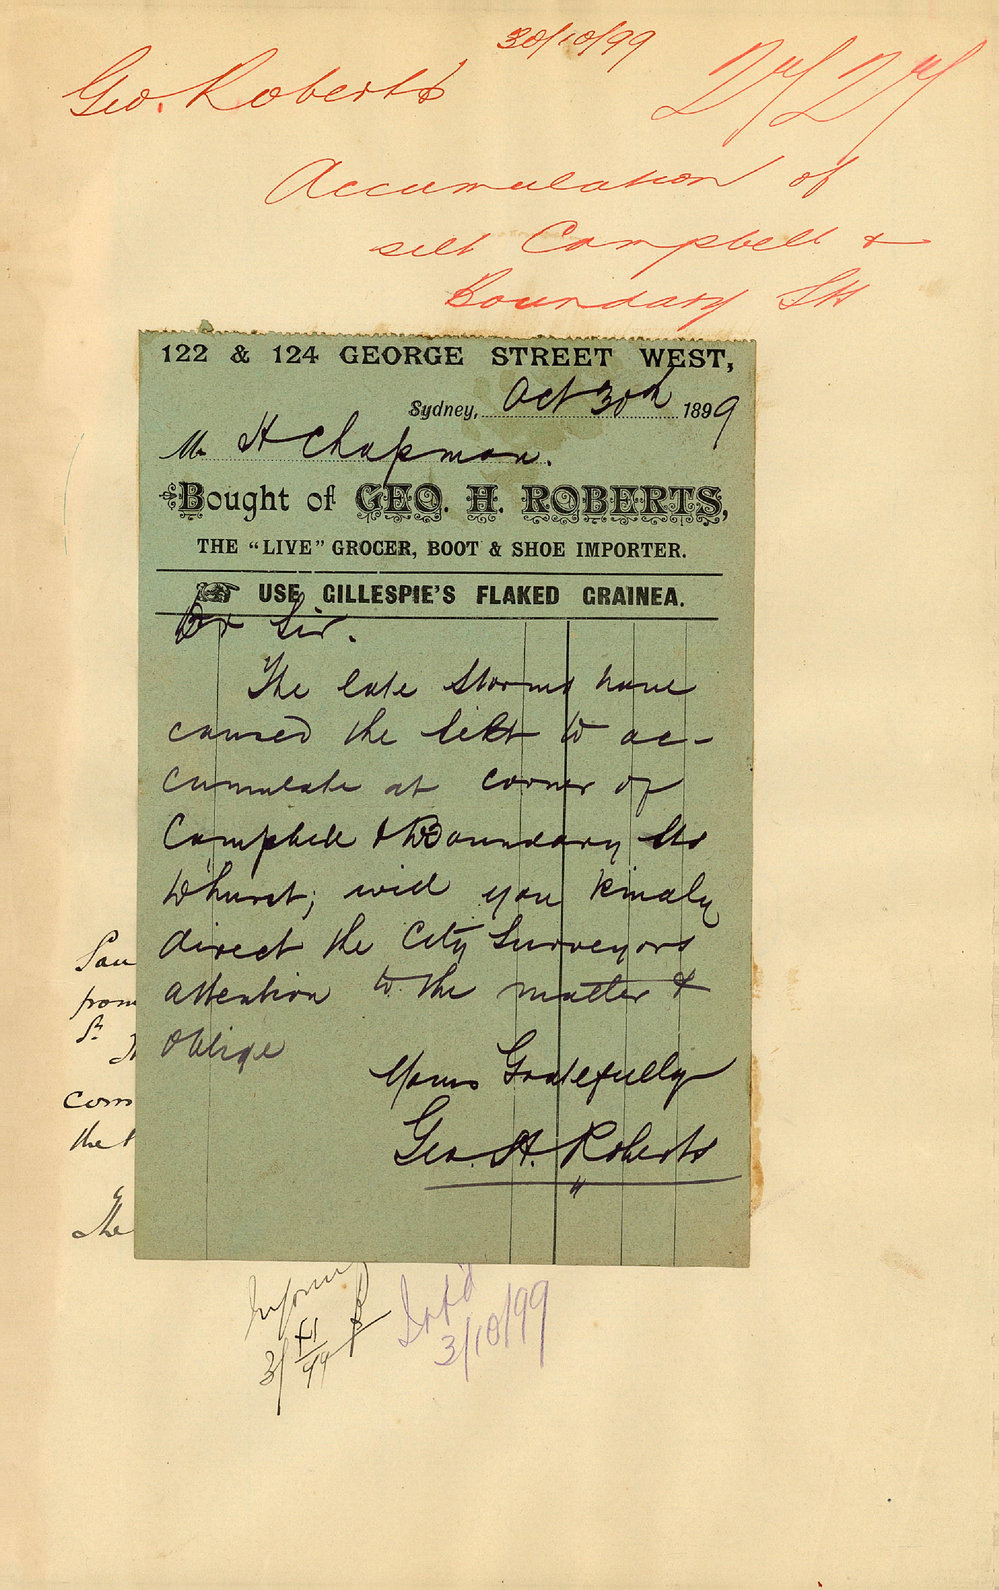 30/10/99
Geo. Roberts
Accumulation of
silt Campbell &
Boundary Sts
122 & 124 GEORGE STREET WEST,
Sydney, Oct 30th 1899
Mr H Chapman.
Bought of GEO. H. ROBERTS,
THE "LIVE" GROCER, BOOT & SHOE IMPORTER.
USE GILLESPIE'S FLAKED GRAINEA.
Dr Sir.
The late storms have
caused the silt to ac-
cumulate at corner of
Campbell & Boundary Sts
D'hurst; will you kindly
direct the City Surveyors
attention to the matter &
oblige
Yours Gratefully
Geo. H. Roberts
from
St
com
the
The
Inf'd
3/10/99